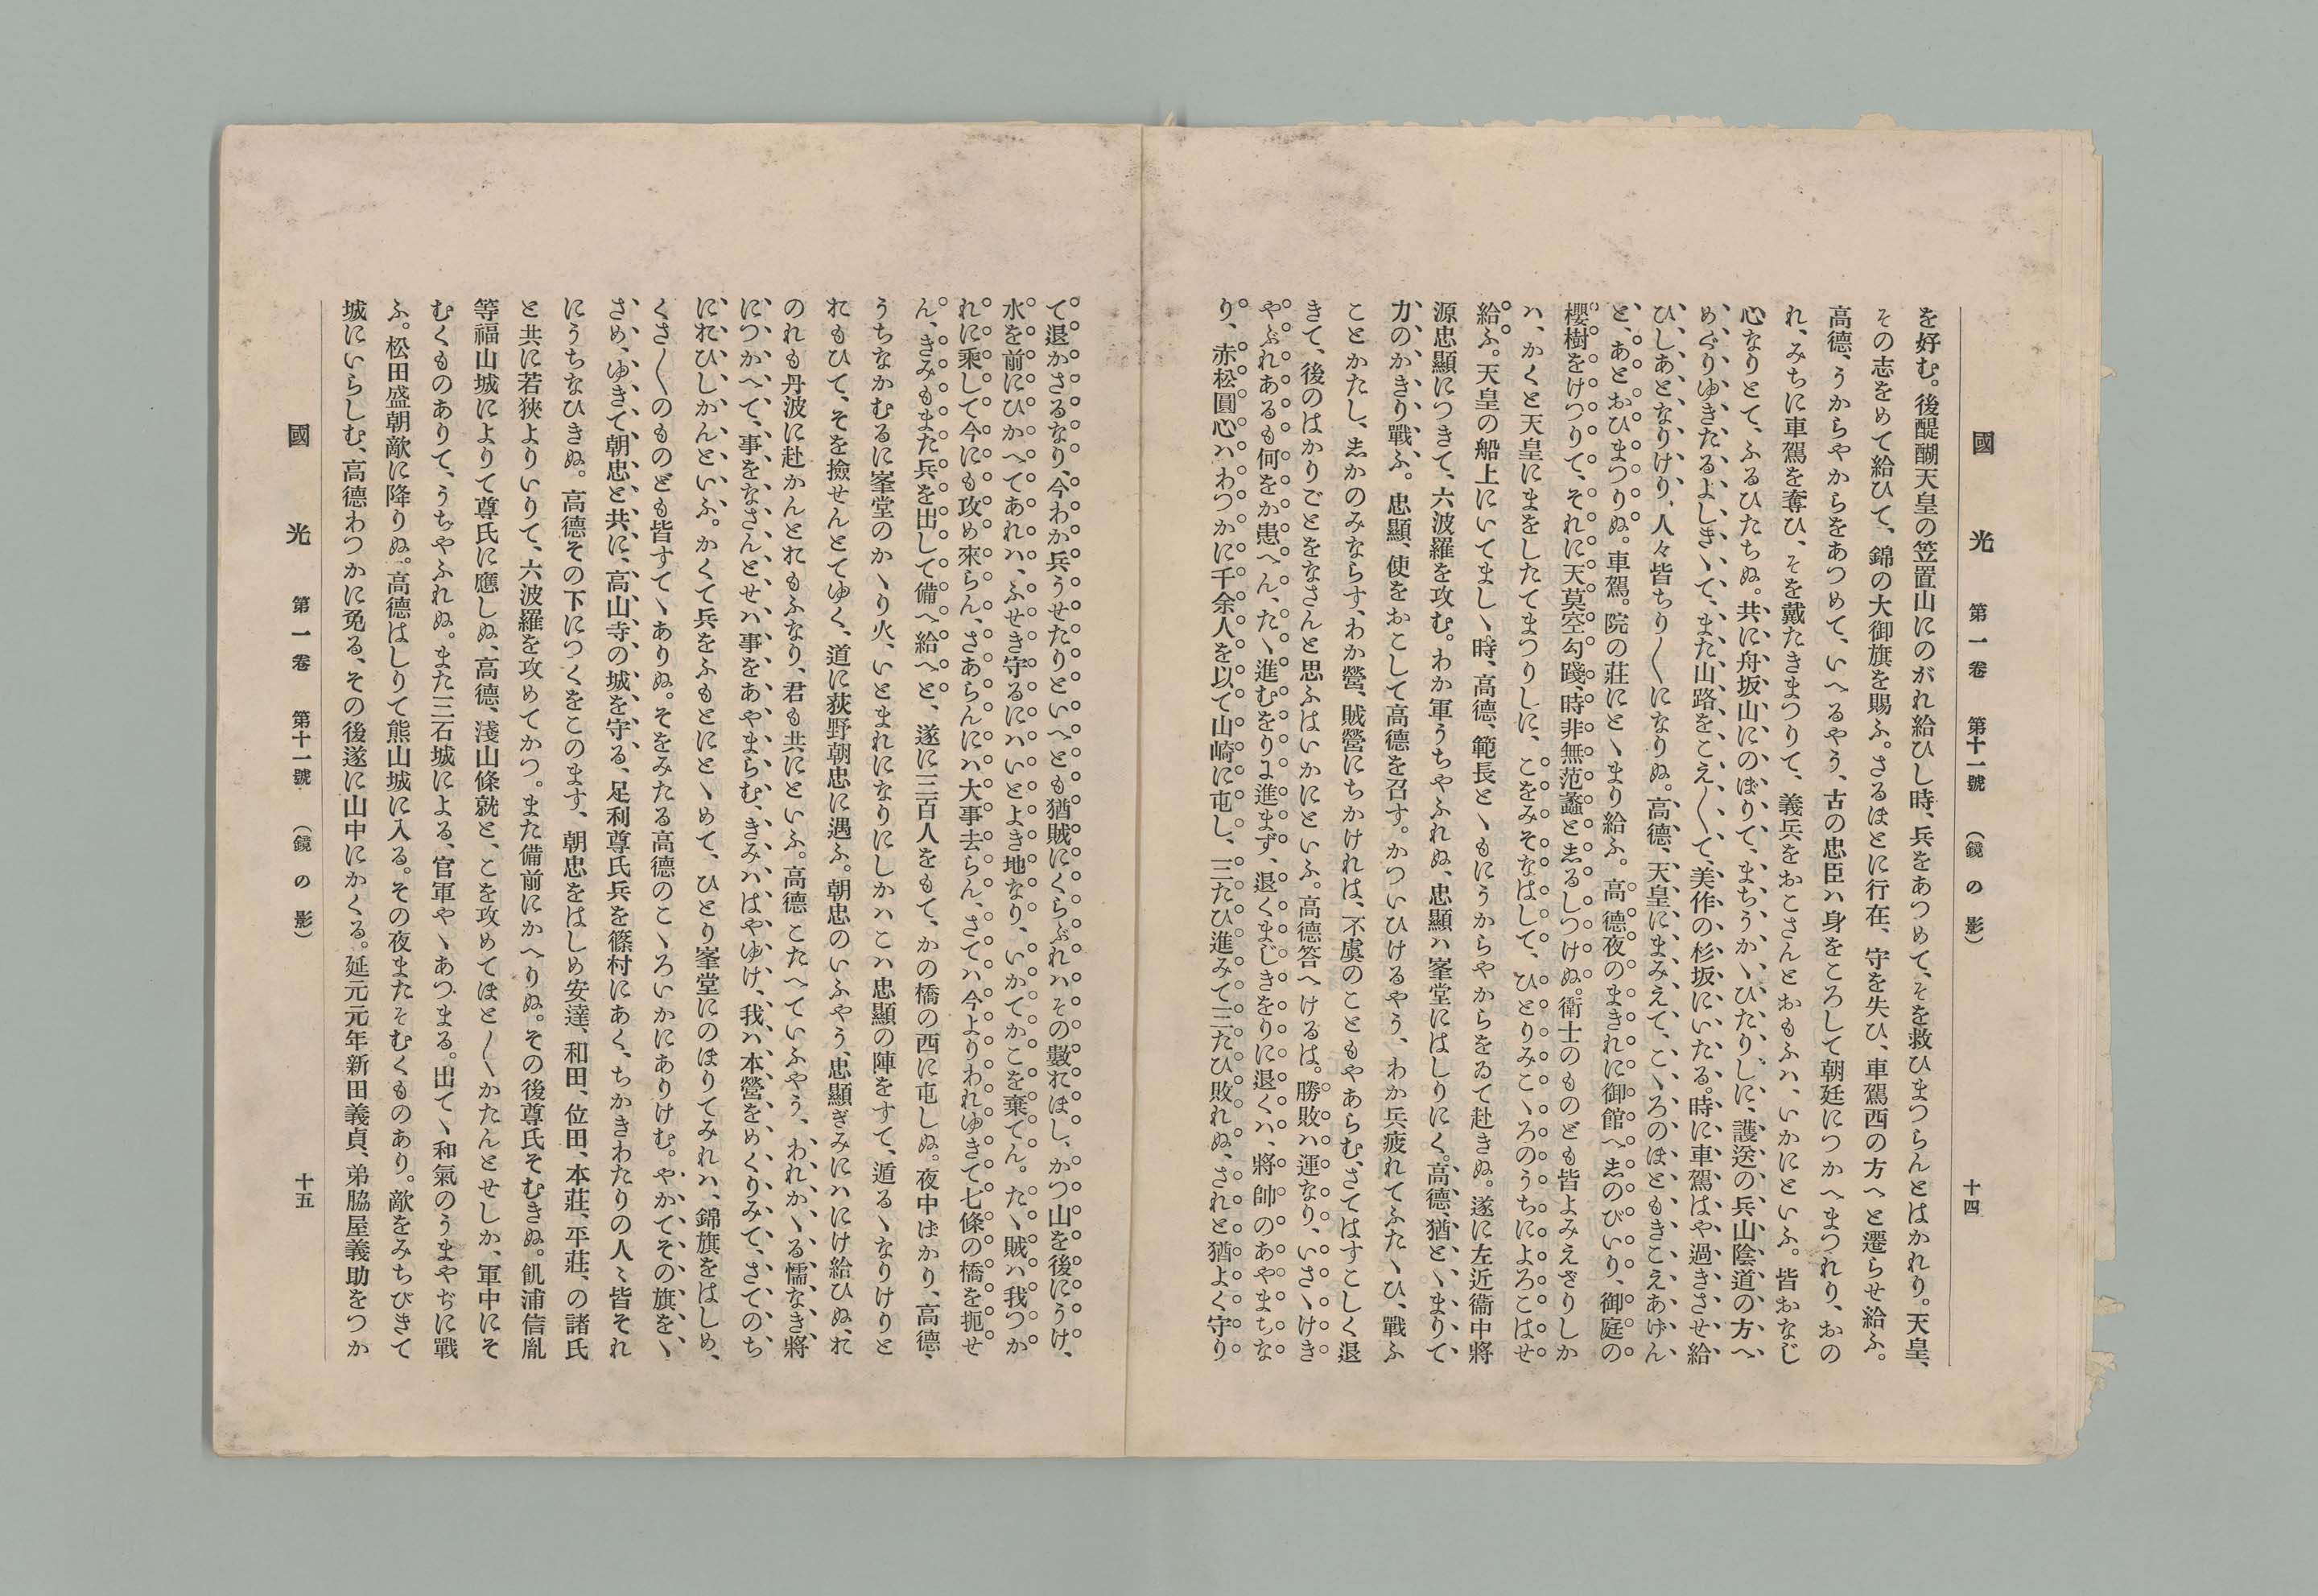 國光 第一卷 第十一號 （鏡の影） 十四
を好む。後醍醐天皇の笠置山にのがれ給ひし時、兵をあつめて、そを救ひまつらんとはかれり。天皇、
その志をめて給ひて、錦の大御旗を賜ふ。さるほとに行在、守を失ひ、車駕西の方へと遷らせ給ふ。
高德、うからやからをあつめて、いへるやう、古の忠臣ハ身をころして朝廷につかへまつれり、おの
れ、みちに車駕を奪ひ、そを戴たきまつりて、義兵をおこさんとおもふハ、いかにといふ。皆おなじ
心なりとて、ふるひたちぬ。共に舟坂山にのぼりて、まちうかヽひたりしに、護送の兵山陰道の方へ
めぐりゆきたるよしきヽて、また山路をこえ〳〵て、美作の杉坂にいたる。時に車駕はや過きさせ給
ひしあとなりけり、人々皆ちり〳〵になりぬ。高德、天皇にまみえて、こヽろのほともきこえあけん
と、あとおひまつりぬ。車駕。院の莊にとヽまり給ふ。高德夜のまきれに御館へ志のびいり、御庭の
櫻樹をけつりて、それに天莫空勾踐、時非無范蠡と志るしつけぬ。衛士のものども皆よみえざりしか
ハ、かくと天皇にまをしたてまつりしに、こをみそなはして、ひとりみこヽろのうちによろこはせ
給ふ。天皇の船上にいてましヽ時、高德、範長とヽもにうからやからをゐて赴きぬ。遂に左近衞中將
源忠顯につきて、六波羅を攻む。わか軍うちやふれぬ、忠顯ハ峯堂にはしりにく。高德、猶とヽまりて
力のかきり戰ふ。忠顯、使をおこして高德を召す。かついひけるやう、わか兵疲れてふたヽひ、戰ふ
ことかたし、志かのみならす、わか營、賊營にちかけれは、不虞のこともやあらむ、さてはすこしく退
きて、後のはかりごとをなさんと思ふはいかにといふ。高德答へけるは。勝敗ハ運なり、いさヽけき
やぶれあるも何をか患へん、たヽ進むをりに進まず、退くまじきをりに退くハ、將帥のあやまちな
り、赤松圓心ハわつかに千余人を以て山崎に屯し、三たひ進みて三たひ敗れぬ、されと猶よく守り
て退かさるなり、今わか兵うせたりといへとも猶賊にくらぶれハその數れほし、かつ山を後にうけ、
水を前にひかへてあれハ、ふせき守るにハいとよき地なり、いかてかこを棄てん。たヽ賊ハ我つか
れに乘して今にも攻め來らん、さあらんにハ大事去らん、さてハ今よりわれゆきて七條の橋を扼せ
ん、きみもまた兵を出して備へ給へと、遂に三百人をもて、かの橋の西に屯しぬ。夜中はかり、高德、
うちなかむるに峯堂のかヽり火、いとまれになりにしかハこハ忠顯の陣をすて、遁るヽなりけりと
れもひて、そを撿せんとてゆく、道に荻野朝忠に遇ふ。朝忠のいふやう、忠顯ぎみにハにけ給ひぬ、れ
のれも丹波に赴かんとれもふなり、君も共にといふ。高德こたへていふやう、われかヽる懦なき將
につかへて、事をなさんとせハ事をあやまらむ、きみハはやゆけ、我ハ本營をめくりみて、さてのち
にれひしかんといふ。かくて兵をふもとにとヽめて、ひとり峯堂にのほりてみれハ、錦旗をはしめ、
くさ〳〵のものども皆すてヽありぬ。そをみたる高德のこヽろいかにありけむ。やかてその旗をヽ
さめ、ゆきて朝忠と共に、高山寺の城を守る、足利尊氏兵を篠村にあく、ちかきわたりの人〻皆それ
にうちなひきぬ。高德その下につくをこのます、朝忠をはしめ安達、和田、位田、本莊、平莊、の諸氏
と共に若狹よりいりて、六波羅を攻めてかつ。また備前にかへりぬ。その後尊氏そむきぬ。飽浦信胤
等福山城によりて尊氏に應しぬ、高德、淺山條就と、こを攻めてほと〳〵かたんとせしか、軍中にそ
むくものありて、うちやふれぬ。また三石城による、官軍やヽあつまる。出てヽ和氣のうまやぢに戰
ふ。松田盛朝敵に降りぬ。高德はしりて熊山城に入る。その夜またそむくものあり。敵をみちびきて
城にいらしむ、高德わつかに免る、その後遂に山中にかくる。延元元年新田義貞、弟脇屋義助をつか
國光 第一卷 第十一號 （鏡の影） 十五